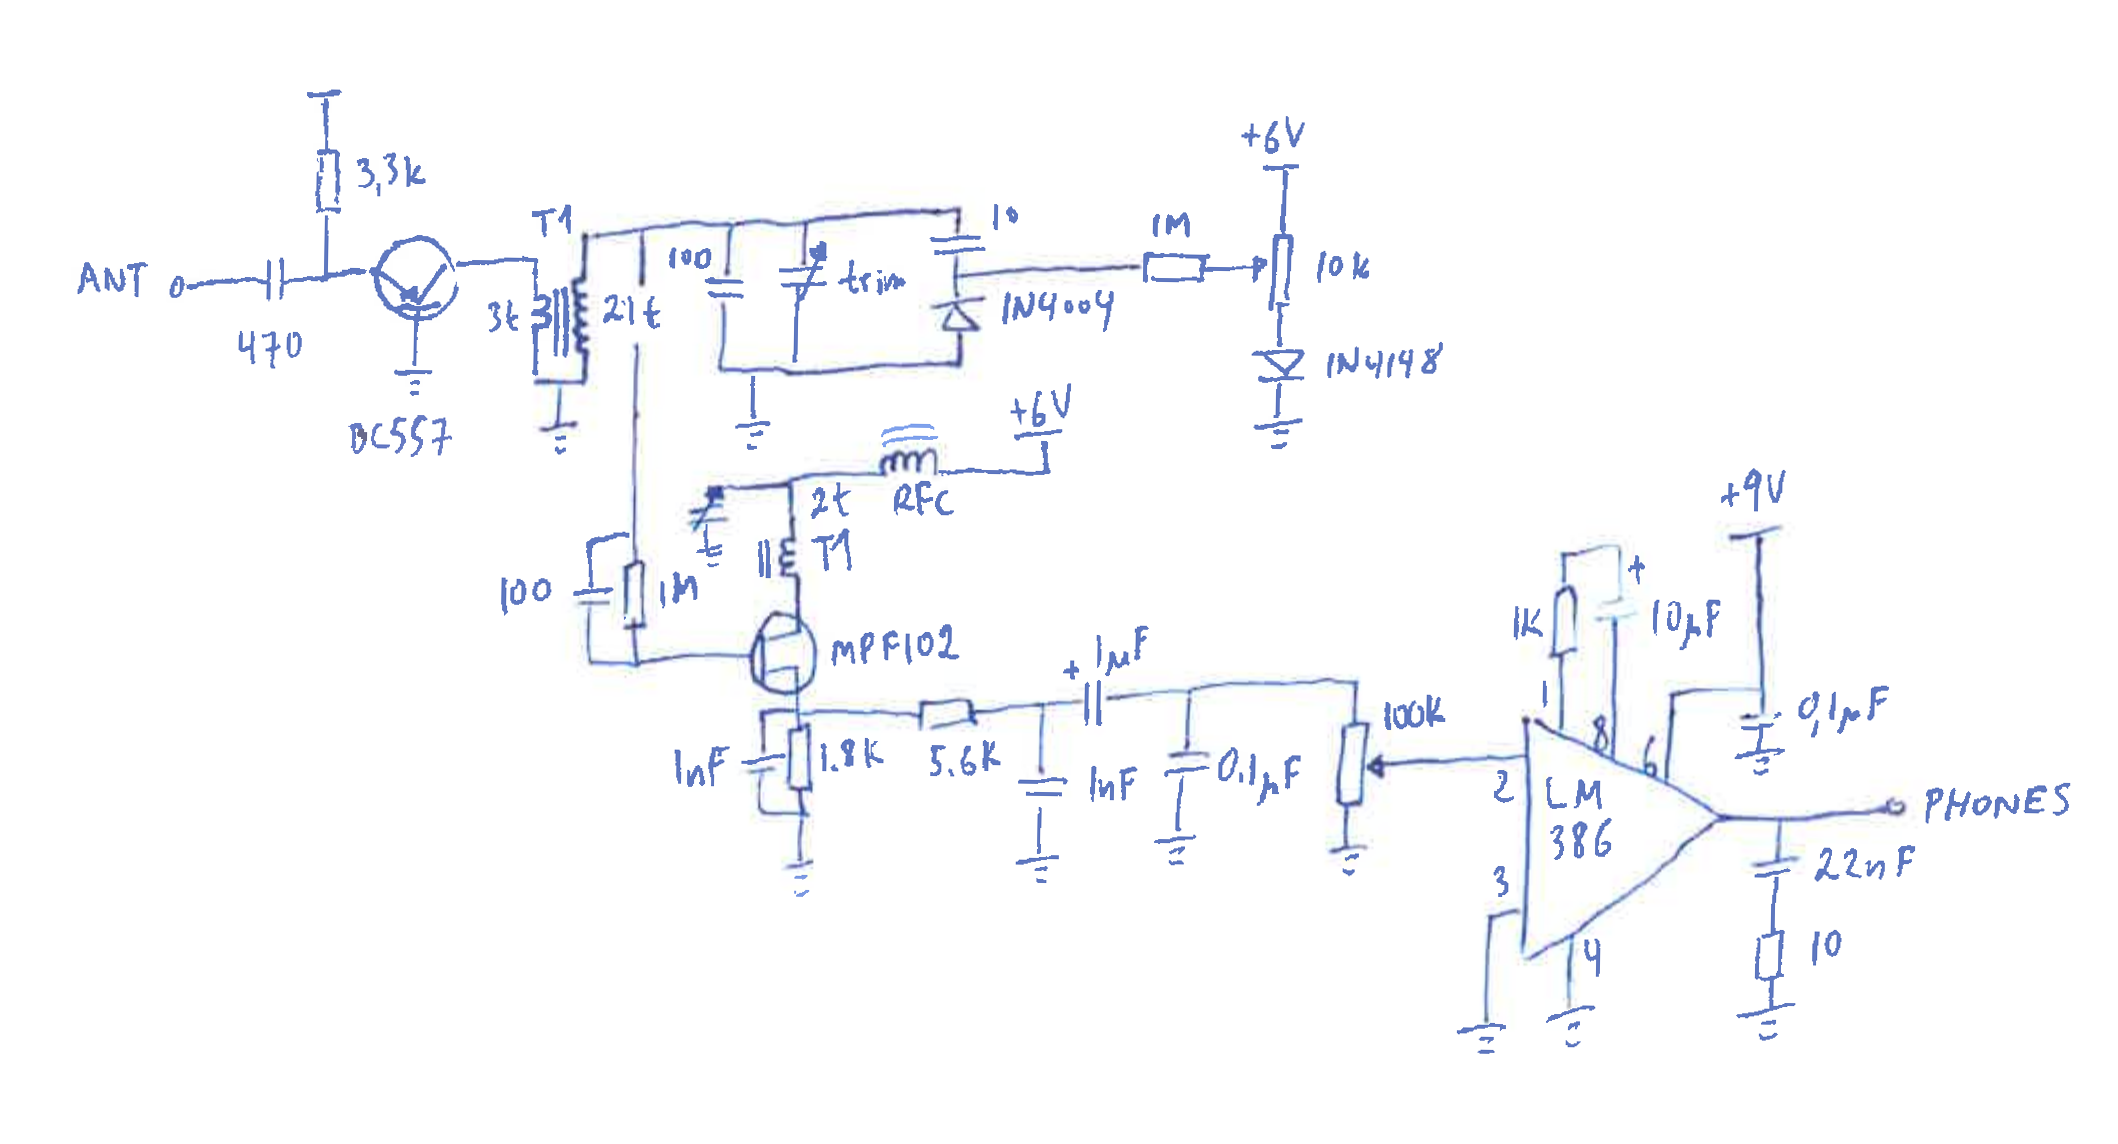 3,3k
ANT
470
BC557
T1
3t
21t
100
trim
10
1N4004
1M
+6V
10k
1N4148
+6V
RFC
2t
T1
100
1M
MPF102
1nF
1.8K
5.6K
1nF
+
1µF
0.1µF
100K
1K
+
10µF
+9V
0,1µF
1
8
6
2
LM
386
3
4
PHONES
22nF
10